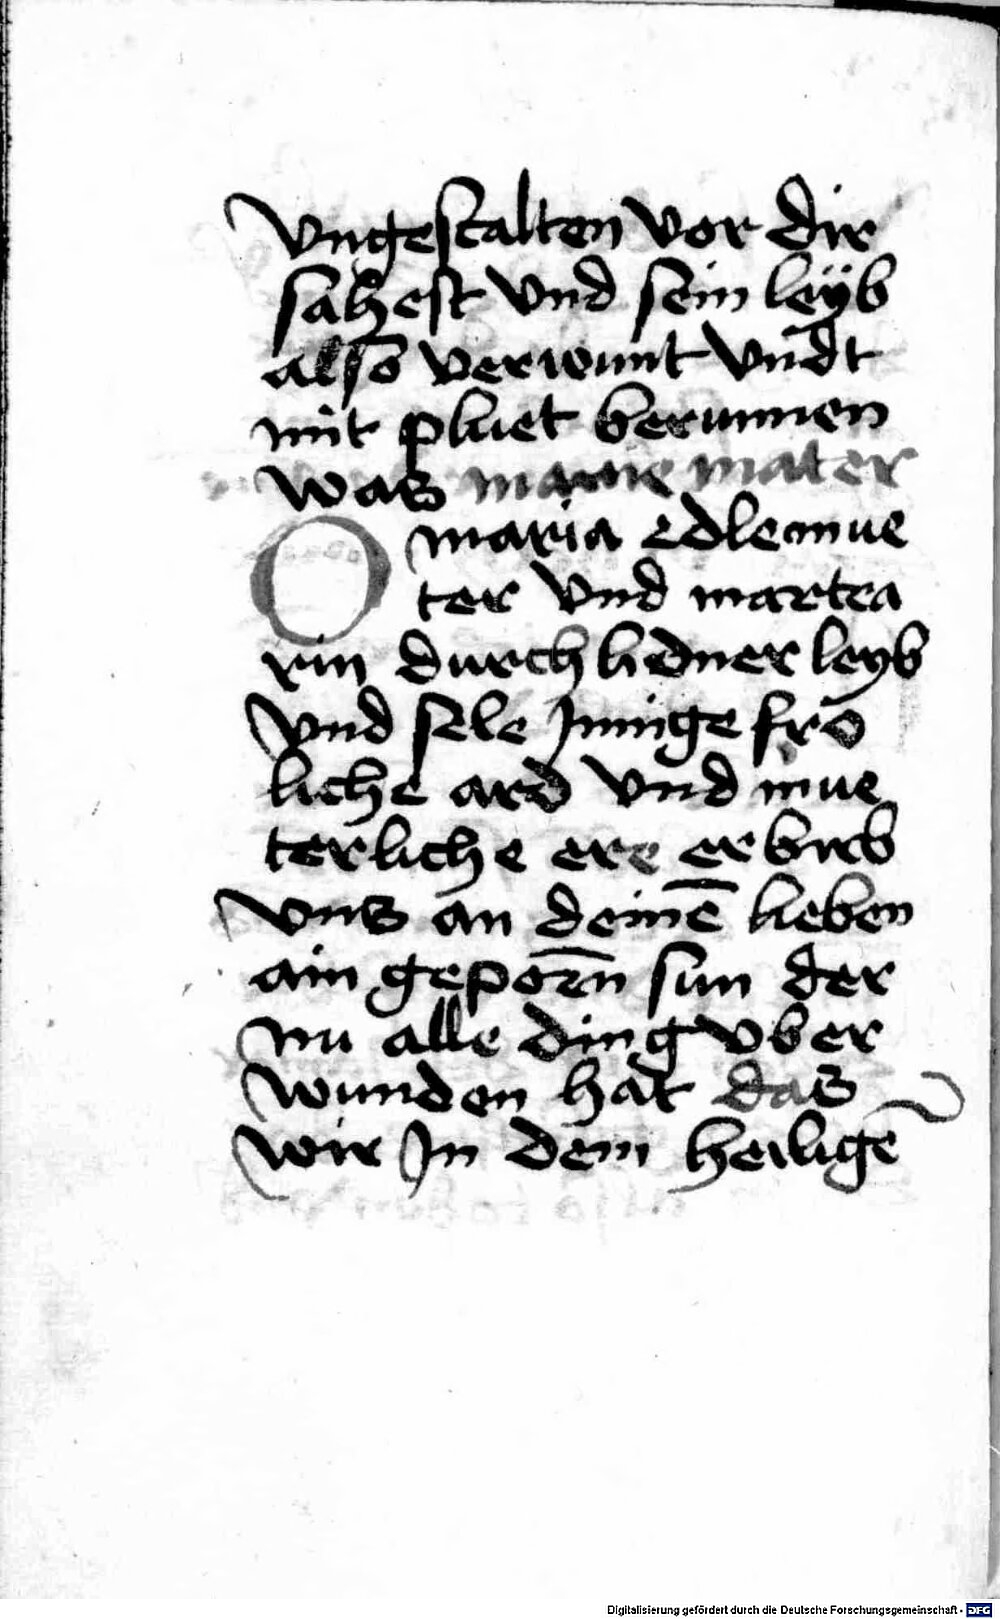 vngestalten vor dir
sahest vnd sein leÿb
also verwunt vndt
mit pluet berunnen
was marie mater
O maria edle mue
ter vnd martra
rin durch lidner leyb
vnd sele Jnnige fro
liche ard vnd mue
terliche ere erbirb
vns an deinē lieben
ain geporn̄ sun der
nu alle ding vber
wunden hat das
wir Jn dem heiligē
Digitalisierung gefördert durch die Deutsche Forschungsgemeinschaft - DFG